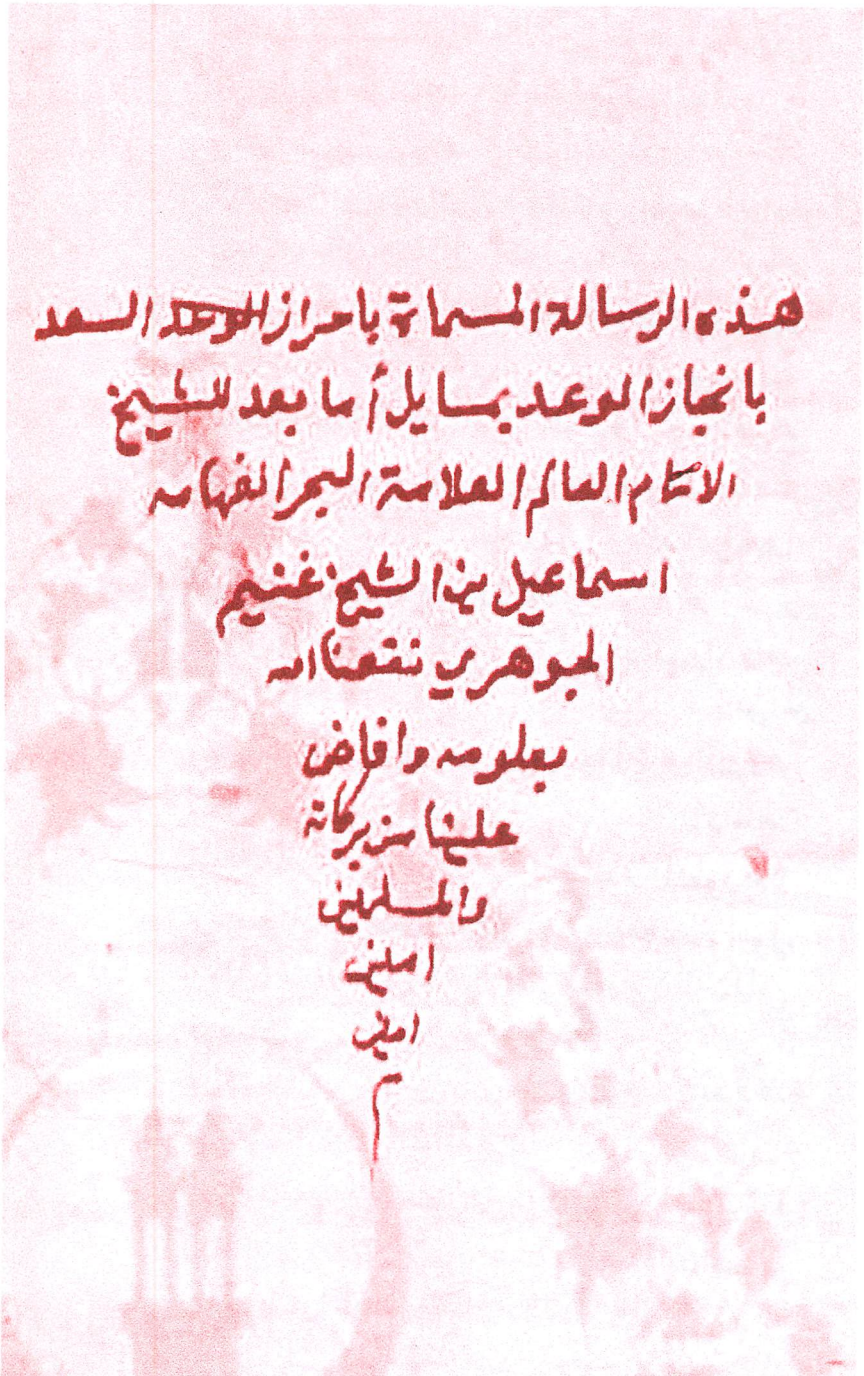 هذه الرسالة المسماة باحراز السعد
بانجاز الوعد بمسايل أما بعد للشيخ
الامام العالم العلامة البحر الفهامه
اسماعيل بن الشيخ غنيم
الجوهري نفعنا الله
بعلومه وافاض
علينا من بركاته
والمسلمين
امين
امين
م